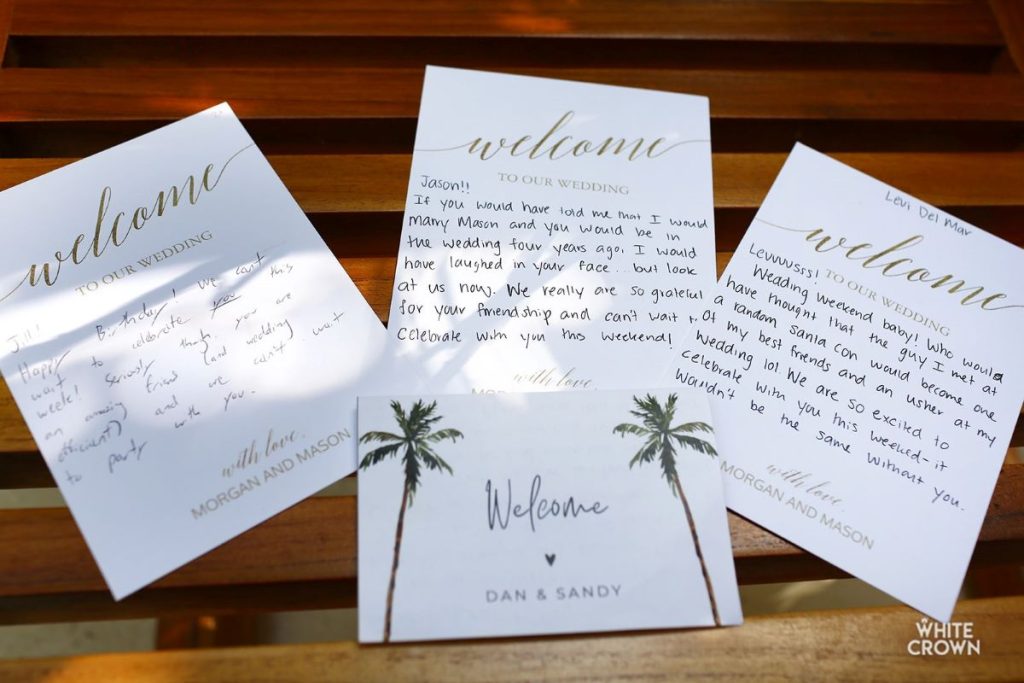 welcome
TO OUR WEDDING
Jill!
Happy Birthday! We can't
wait to celebrate you this
week! Seriously thank you are
an amazing friend (and wedding
efficient) and we can't wait
to party with you.
with love,
MORGAN AND MASON
welcome
TO OUR WEDDING
Jason!!
If you would have told me that I would
marry Mason and you would be in
the wedding four years ago, I would
have laughed in your face...but look
at us now. We really are so grateful
for your friendship and can't wait to
celebrate with you this weekend!
with love,
Levi Del Mar
welcome
TO OUR WEDDING
Levvvusss!
Wedding weekend baby! Who would
have thought that the guy I met at
a random santa con would become one
of my best friends and an usher at my
wedding lol. We are so excited to
celebrate with you this weeked-it
wouldn't be the same without you.
with love,
MORGAN AND MASON
Welcome
DAN & SANDY
WHITE
CROWN